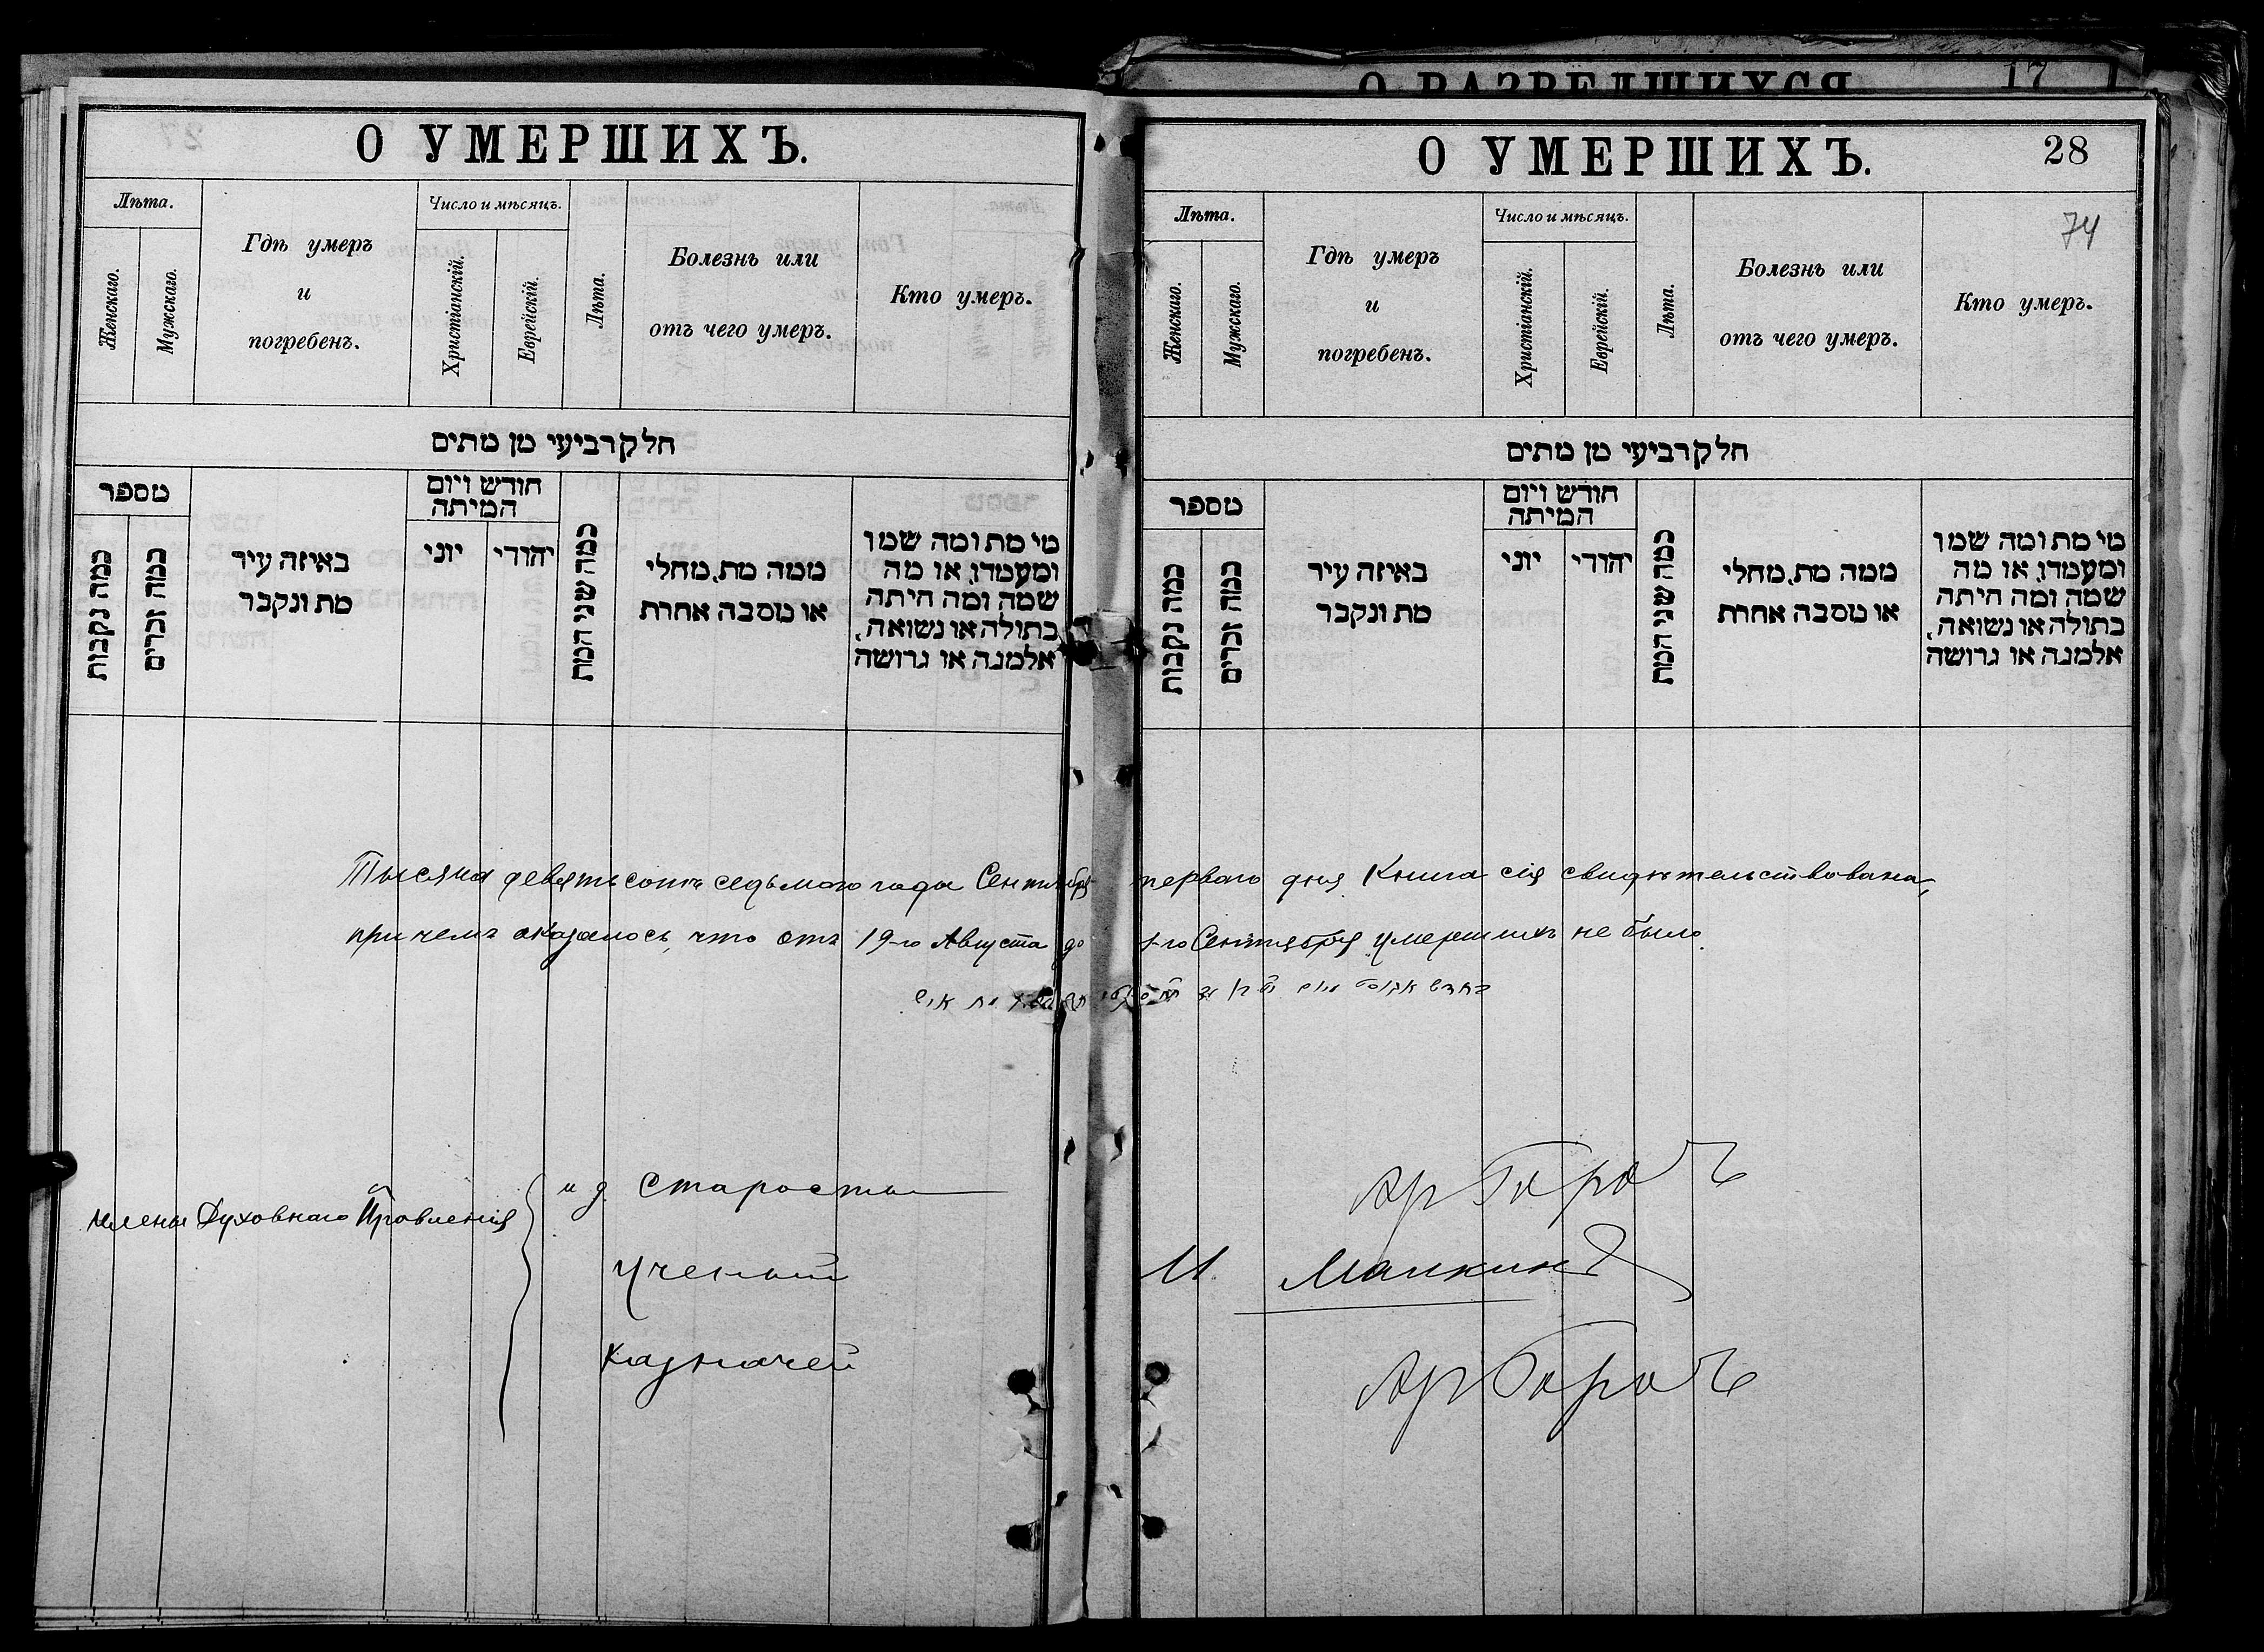 О РАЗВЕДШИХСЯ
17
О УМЕРШИХЪ.
Лѣта.
Женскаго.
Мужскаго.
Гдѣ умеръ
и
погребенъ.
Число и мѣсяцъ.
Христіанскій.
Еврейскій.
Лѣта.
Болезнь или
отъ чего умеръ.
Кто умеръ.
חלק רביעי מן מתים
מספר
כמה נקבות
כמה זכרים
באיזה עיר
מת ונקבר
חודש ויום
המיתה
יוני
יהודי
כמה שני המת
ממה מת, מחלי
או מסבה אחרת
מי מת ומה שמו
ומעמדו, או מה
שמה ומה היתה
בתולה או נשואה,
אלמנה או גרושה
О УМЕРШИХЪ.
28
74
Лѣта.
Женскаго.
Мужскаго.
Гдѣ умеръ
и
погребенъ.
Число и мѣсяцъ.
Христіанскій.
Еврейскій.
Лѣта.
Болезнь или
отъ чего умеръ.
Кто умеръ.
חלק רביעי מן מתים
מספר
כמה נקבות
כמה זכרים
באיזה עיר
מת ונקבר
חודש ויום
המיתה
יוני
יהודי
כמה שני המת
ממה מת, מחלי
או מסבה אחרת
מי מת ומה שמו
ומעמדו, או מה
שמה ומה היתה
בתולה או נשואה,
אלמנה או גרושה
Тысяча девятьсотъ седьмого года Сентября перваго дня Книга сія свидѣтельствована,
причемъ оказалось, что отъ 19-го Августа до 1-го Сентября умершихъ не было.
Члены Духовнаго Правленія
и д. Старосты
Ученый
И. Малкинъ
Казначей